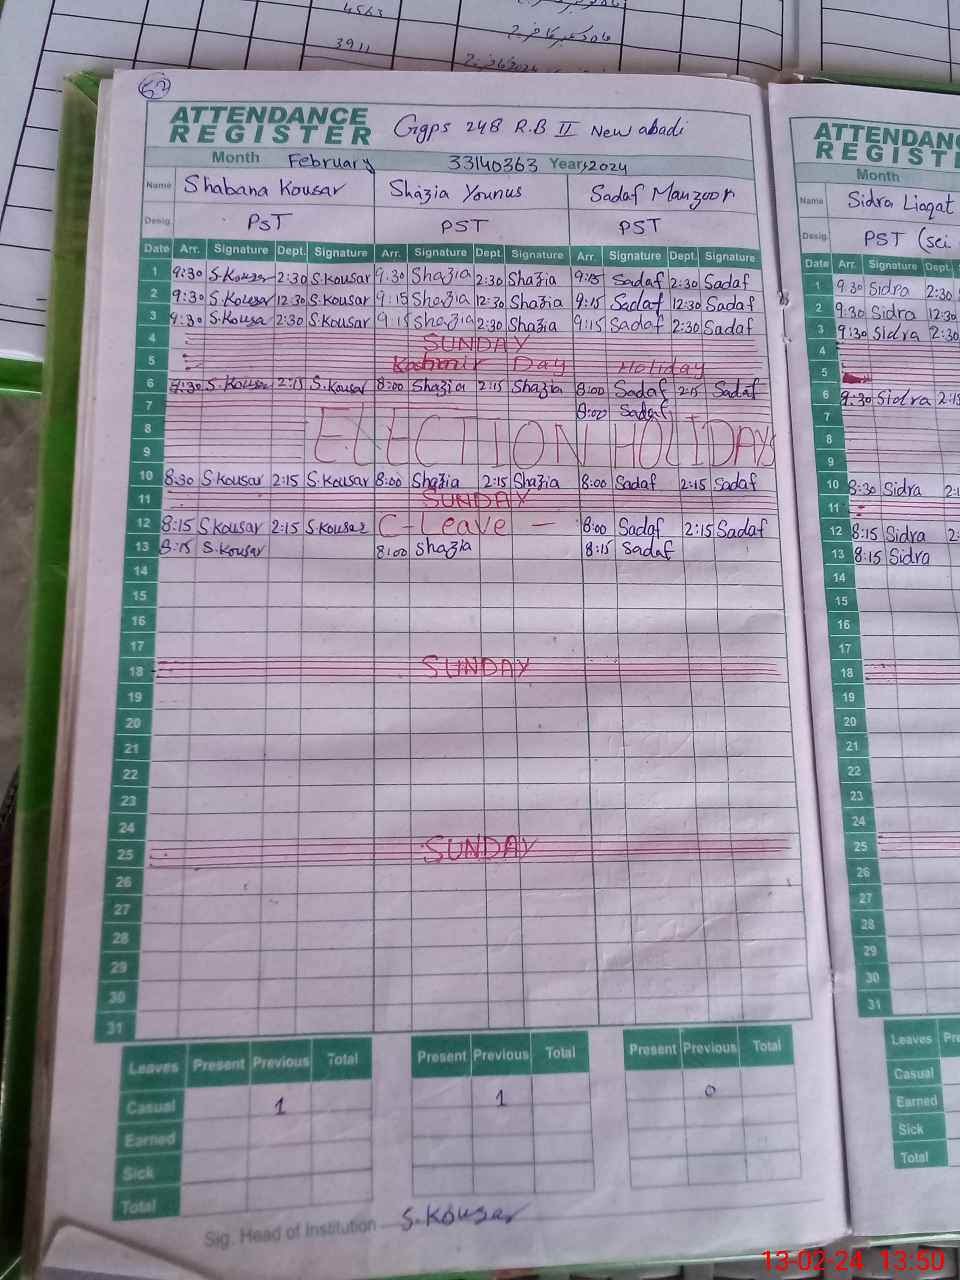 4563
3911
62
ATTENDANCE REGISTER Ggps 248 R.B II New abadi
Month February 33140363 Year, 2024
Name Shabana Kousar Shazia Younus Sadaf Manzoor
Desig. PST PST PST
Date Arr. Signature Dept. Signature Arr. Signature Dept. Signature Arr. Signature Dept. Signature
1 9:30 S.Kousar 2:30 S.Kousar 9:30 Shazia 2:30 Shazia 9:15 Sadaf 2:30 Sadaf
2 9:30 S.Kousar 12:30 S.Kousar 9:15 Shazia 12:30 Shazia 9:15 Sadaf 12:30 Sadaf
3 9:30 S.Kousa 2:30 S.Kousar 9:15 Shazia 2:30 Shazia 9:15 Sadaf 2:30 Sadaf
4 SUNDAY
5 Kashmir Day Holiday
6 9:30 S.Kousar 2:15 S.Kousar 8:00 Shazia 2:15 Shazia 8:00 Sadaf 2:15 Sadaf
7 8:00 Sadaf
8 ELECTION HOLIDAYS
9
10 8:30 S.Kousar 2:15 S.Kousar 8:00 Shazia 2:15 Shazia 8:00 Sadaf 2:15 Sadaf
11 SUNDAY
12 8:15 S.Kousar 2:15 S.Kousar C-Leave - 8:00 Sadaf 2:15 Sadaf
13 8:15 S.Kousar 8:00 Shazia 8:15 Sadaf
14
15
16
17
18 SUNDAY
19
20
21
22
23
24
25 SUNDAY
26
27
28
29
30
31
Leaves Present Previous Total Present Previous Total Present Previous Total
Casual 1 1 0
Earned
Sick
Total
Sig. Head of Institution S.Kousar
ATTENDANC
REGIST
Month
Name Sidra Liaqat
Desig. PST (sci
Date Arr. Signature Dept.
1 9:30 Sidra 2:30
2 9:30 Sidra 12:30
3 9:30 Sidra 2:30
4
5
6 9:30 Sidra 2:15
7
8
9
10 8:30 Sidra 2:1
11
12 8:15 Sidra 2:
13 8:15 Sidra
14
15
16
17
18
19
20
21
22
23
24
25
26
27
28
29
30
31
Leaves Pre
Casual
Earned
Sick
Total
13-02-24 13:50